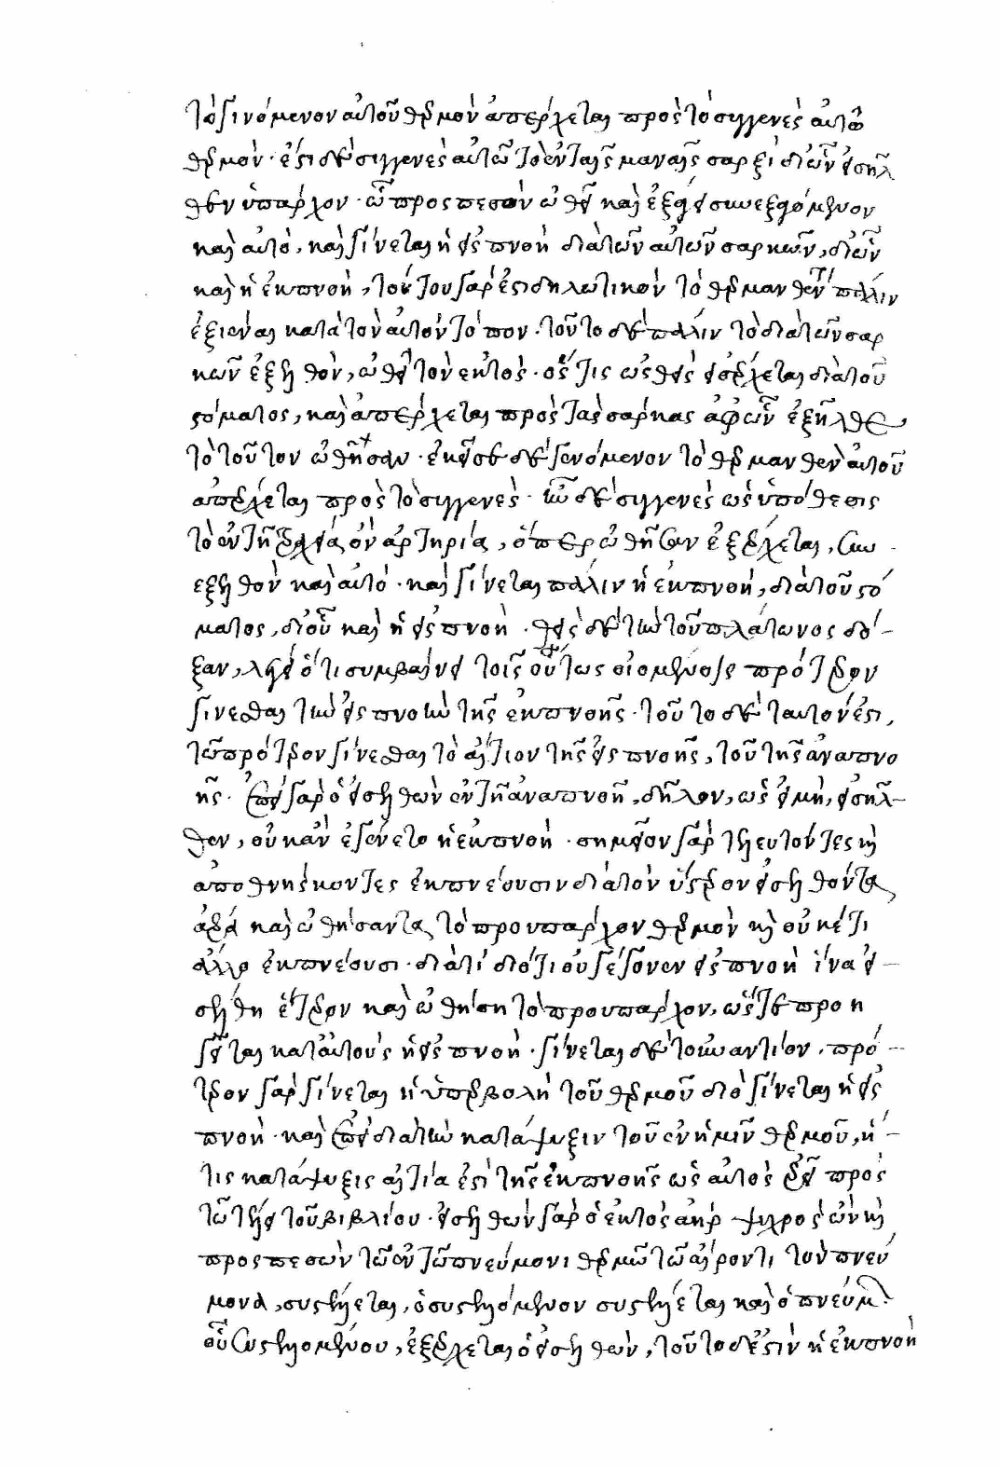 τὸ γινόμενον αὐτοῦ θερμὸν ἀπέρχεται πρὸς τὸ συγγενὲς αὐτῶ
θερμόν· ἔστι δὲ συγγενὲς αὐτῶ τὸ ἐν ταῖς μαναῖς σαρξὶ δι' ὧν εἰσῆλ
θεν ὑπάρχον· ᾧ προσπεσὸν ὠθεῖ καὶ ἐξέρχεται συνεξερχόμενον
καὶ αὐτό, καὶ γίνεται ἡ εἰσπνοὴ διὰ τῶν αὐτῶν σαρκῶν, δι' ὧν
καὶ ἡ ἐκπνοή, τὸν τοῦ γάρ ἐστι δηλωτικὸν τὸ θερμανθὲν πάλιν
ἐξιέναι κατὰ τὸν αὐτὸν τόπον· τοῦτο δὲ πάλιν τὸ διὰ τῶν σαρ
κῶν ἐξελθόν, ὠθεῖ τὸν ἐκτός· ὅστις ὠσθεὶς εἰσέρχεται διὰ τοῦ
στόματος, καὶ ἀπέρχεται πρὸς τὰς σάρκας ἀφ' ὧν ἐξῆλθε
τὸ τοῦτον ὠθῆσαν· ἐκεῖσε δὲ γενόμενον τὸ θερμανθὲν αὐτοῦ
ἀπέρχεται πρὸς τὸ συγγενές· τῶ δὲ συγγενὲς ὡς ὑπόθεσις
τὸ ἐν τῆ τραχείᾳ ὂν ἀρτηρίᾳ, ὅπερ ὠθῆσαν ἐξέρχεται, συν
εξελθὸν καὶ αὐτό· καὶ γίνεται πάλιν ἡ ἐκπνοή, διὰ τοῦ στό
ματος, δι' οὗ καὶ ἡ εἰσπνοή· θεὶς δὲ τὴν τοῦ πλάτωνος δό-
ξαν, λέγει ὅτι συμβαίνει τοῖς οὕτως οἰομένοις πρότερον
γίνεσθαι τὴν εἰσπνοὴν τῆς ἐκπνοῆς· τοῦτο δὲ ταὐτόν ἐστι,
τῶ πρότερον γίνεσθαι τὸ αἴτιον τῆς εἰσπνοῆς, τοῦ τῆς ἀναπνο
ῆς· ἐπεὶ γὰρ ὁ εἰσελθὼν ἐν τῆ ἀναπνοῆ, δῆλον, ὡς εἰ μὴ, εἰσῆλ-
θεν, οὐκ ἂν ἐγένετο ἡ ἐκπνοή· σημεῖον γὰρ τελευτῶντες καὶ
ἀποθνήσκοντες ἐκπνέουσιν διὰ τὸν ὕστερον εἰσελθόντα
ἀέρα καὶ ὠθήσαντα τὸ προυπάρχον θερμὸν καὶ οὐκέτι
ἄλλο ἐκπνέουσι· διατί διότι οὐ γέγονεν εἰσπνοὴ ἵνα εἰ-
σέλθη ἕτερον καὶ ὠθήση τὸ προυπάρχον, ὥστε προη
γεῖται κατ' αὐτοὺς ἡ εἰσπνοή· γίνεται δὲ τοὐναντίον, πρό-
τερον γὰρ γίνεται ἡ ὑπερβολὴ τοῦ θερμοῦ διὸ γίνεται ἡ εἰσ
πνοή· καὶ ἐπεὶ διὰ τὴν κατάψυξιν τοῦ ἐν ἡμῖν θερμοῦ, ἥ-
τις κατάψυξις αἰτία ἐστὶ τῆς ἐκπνοῆς ὡς αὐτὸς ἐρεῖ πρὸς
τῶ τέλει τοῦ βιβλίου· εἰσελθὼν γὰρ ὁ ἐκτὸς ἀὴρ ψυχρὸς ὢν καὶ
προσπεσὼν τῶ ἐν τῶ πνεύμονι θερμῶ τῶ αἴροντι τὸν πνεύ
μονα, συστέλλεται, ὁ συστελλόμενον συστέλλεται καὶ ὁ πνεύμων·
οὗ συστελλομένου, ἐξέρχεται ὁ εἰσελθών, τοῦτο δέ ἐστιν ἡ ἐκπνοὴ